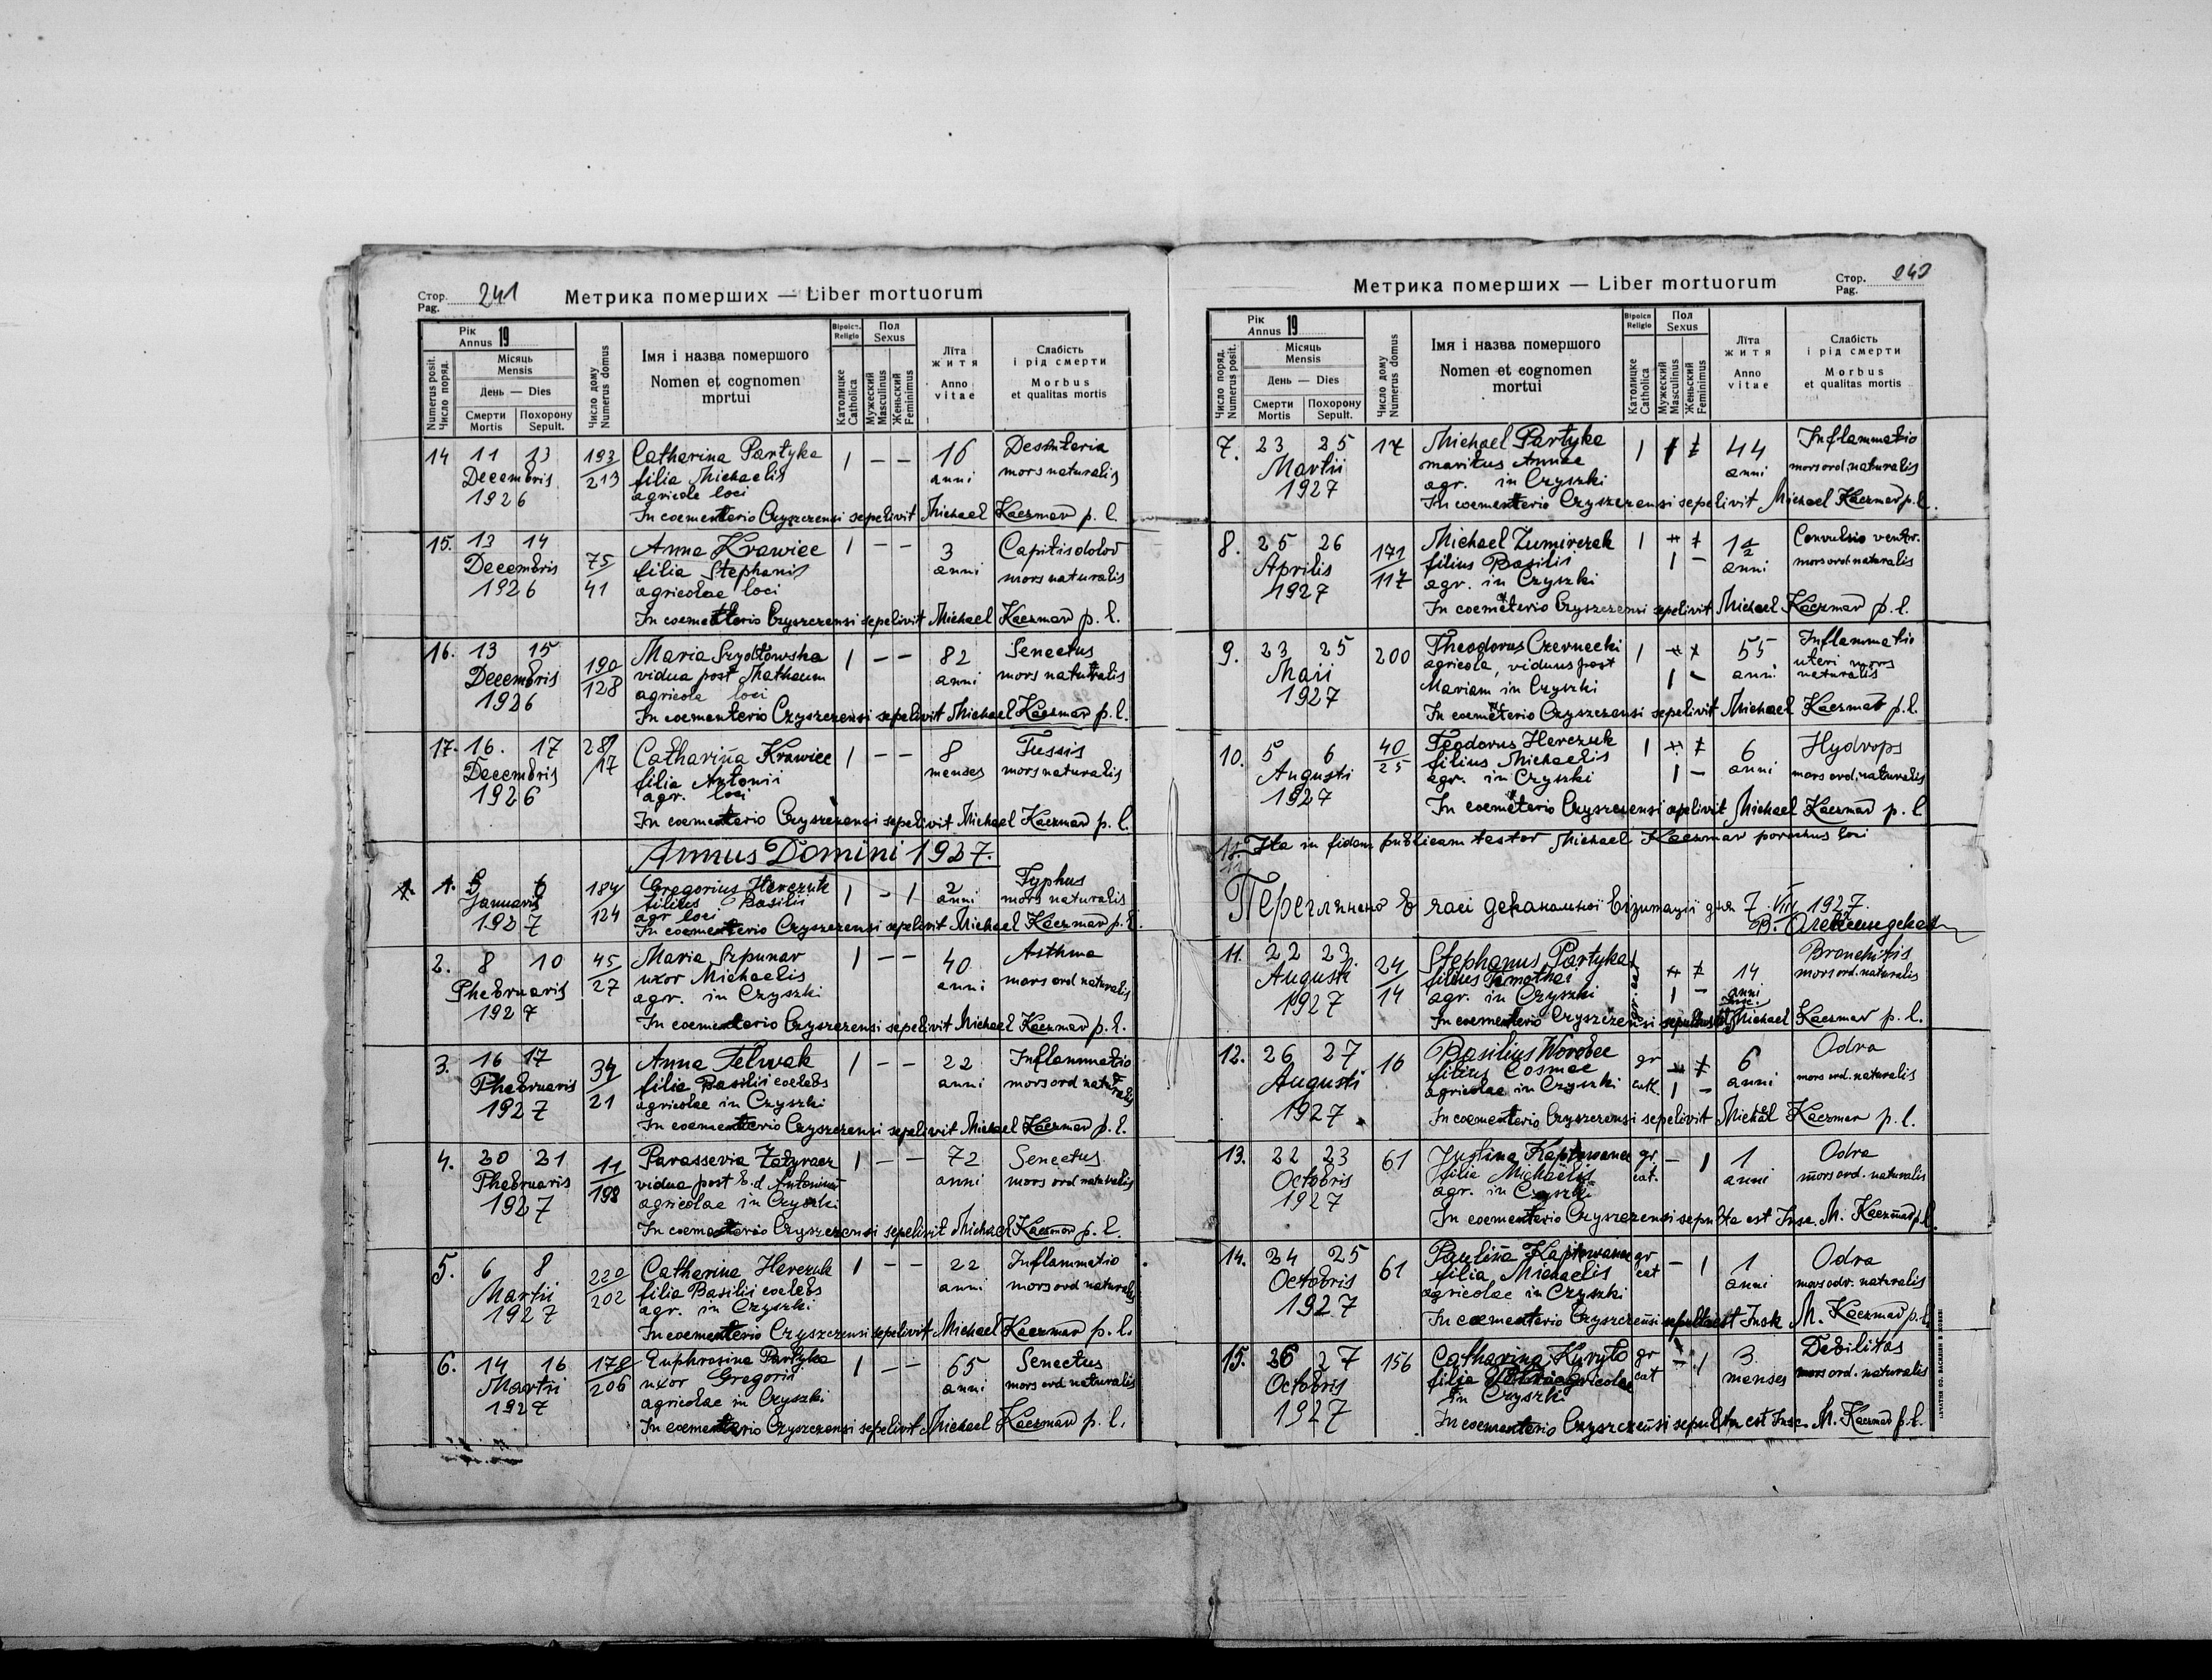 Стор. Pag. 241
Метрика померших — Liber mortuorum
Рік Annus 19
Numerus posit. Число поряд.
Місяць Mensis
День — Dies
Смерти Mortis
Похорону Sepult.
Число дому Numerus domus
Імя і назва помершого
Nomen et cognomen mortui
Віроісп. Religio
Католицке Catholica
Пол Sexus
Мужеский Masculinus
Женьский Feminimus
Літа життя
Anno vitae
Слабість і рід смерти
Morbus et qualitas mortis
14 11 13 193 Catharina Partyka 1 — — 16
Decembris 213 filia Michaelis anni mors naturalis
1926 agricole loci
In coementerio Czyszczensi sepelivit Michael Kaczmar p. l.
15. 13 14 75 Anna Krawiec 1 — — 3 Capitis dolor
Decembris 41 filia Stephanis anni mors naturalis
1926 agricolae loci
In coementerio Czyszczensi sepelivit Michael Kaczmar p. l.
16. 13 15 190 Maria Szydłowska 1 — — 82 Senectus
Decembris 128 vidua post Mathaeum anni mors naturalis
1926 agricola loci
In coementerio Czyszczensi sepelivit Michael Kaczmar p. l.
17. 16. 17 28/17 Catharina Krawiec 1 — — 8 Tussis
Decembris filia Antonii menses mors naturalis
1926 agr. loci
In coementerio Czyszczensi sepelivit Michael Kaczmar p. l.
Annus Domini 1927.
1. 6 184 Gregorius Herczuk 1 - 1 2 Typhus
Januaris 124 filius Basilii anni mors naturalis
1927 agr loci
In coementerio Czyszczensi sepelivit Michael Kaczmar p. l.
2. 8 10 45 Maria Szpunar 1 — — 40 Asthma
Phebruaris 27 uxor Michaelis anni mors ord naturalis
1927 agr. in Czyszki
In coementerio Czyszczensi sepelivit Michael Kaczmar p. l.
3. 16 17 34 Anna Telwak 1 — — 22 Inflammatio
Phebruaris 21 filia Basilii coelebs anni mors ord naturalis
1927 agricolae in Czyszki
In coementerio Czyszczensi sepelivit Michael Kaczmar p. l.
4. 20 21 11 Parassevia 1 — — 72 Senectus
Phebruaris 198 vidua post anni mors ord naturalis
1927 agricolae in Czyszki
In coementerio Czyszczensi sepelivit Michael Kaczmar p. l.
5. 6 8 220 Catharina Herczuk 1 — — 22 Inflammatio
Martii 202 filia Basilii coelebs anni mors ord naturalis
1927 agr. in Czyszki
In coementerio Czyszczensi sepelivit Michael Kaczmar p. l.
6. 14 16 178 Euphrosina Partyka 1 — — 65 Senectus
Martii 206 uxor Gregorii anni mors ord naturalis
1927 agricolae in Czyszki
In coementerio Czyszczensi sepelivit Michael Kaczmar p. l.
Метрика померших — Liber mortuorum
Стор. Pag.
Рік Annus 19
Число поряд. Numerus posit.
Місяць Mensis
День — Dies
Смерти Mortis
Похорону Sepult.
Число дому Numerus domus
Імя і назва помершого
Nomen et cognomen mortui
Віроісп Religio
Католицке Catholica
Пол Sexus
Мужеский Masculinus
Женьский Feminimus
Літа життя
Anno vitae
Слабість і рід смерти
Morbus et qualitas mortis
7. 23 25 17 Michael Partyka 1 44 Inflammatio
Martii maritus Annae anni mors ord. naturalis
1927 agr. in Czyszki
In coementerio Czyszczensi sepelivit Michael Kaczmar p. l.
8. 25 26 171 Michael 1 Convulsio ventr.
Aprilis 117 filius Basilii 1 — anni mors ord. naturalis
1927 agr. in Czyszki
In coemeterio Czyszczensi sepelivit Michael Kaczmar p. l.
9. 23 25 200 Theodorus Czernecki 1 55 Inflammatio
Maii agricola, viduus post 1 — anni uteri mors
1927 Mariam in Czyszki naturalis
In coemeterio Czyszczensi sepelivit Michael Kaczmar p. l.
10. 5 6 40 Teodorus Herczuk 1 6 Hydrops
Augusti 25 filius Michaelis 1 — anni mors ord. naturalis
1927 agr. in Czyszki
In coemeterio Czyszczensi sepelivit Michael Kaczmar p. l
Ita in fidem publicam testor Michael Kaczmar parochus loci
Переглянено в часі деканальної візитації дня 7 VIII 1927.
11. 22 23. 24 Stephanus Partyka 14 Bronchitis
Augusti 14 filius Timothei 1 — anni mors ord. naturalis
1927 agr. in Czyszki
In coementerio Czyszczensi Michael Kaczmar p. l.
12. 26 27 16 Basilius Worobec gr 6 Odra
Augusti filius Cosmae cath. 1 — anni mors ord. naturalis
1927 agricolae in Czyszki
In coementerio Czyszczensi sepelivit Michael Kaczmar p. l.
13. 22 23 61 Justina gr — 1 1 Odra
Octobris filia Michaelis cat. anni mors ord. naturalis
1927 agr. in Czyszki
In coementerio Czyszczensi sepulta est Insc. M. Kaczmar p. l.
14. 24 25 61 Paulina gr — 1 1 Odra
Octobris filia Michaelis cat anni mors odr. naturalis
1927 agricolae in Czyszki
In coementerio Czyszczensi est Insk M. Kaczmar p. l.
15. 26 27 156 Catharina Kuryło gr — 1 3 Debilitas
Octobris filia agricolae cat menses mors ord. naturalis
1927 in Czyszki
In coementerio Czyszczensi sepulta est Insc. M. Kaczmar p. l.